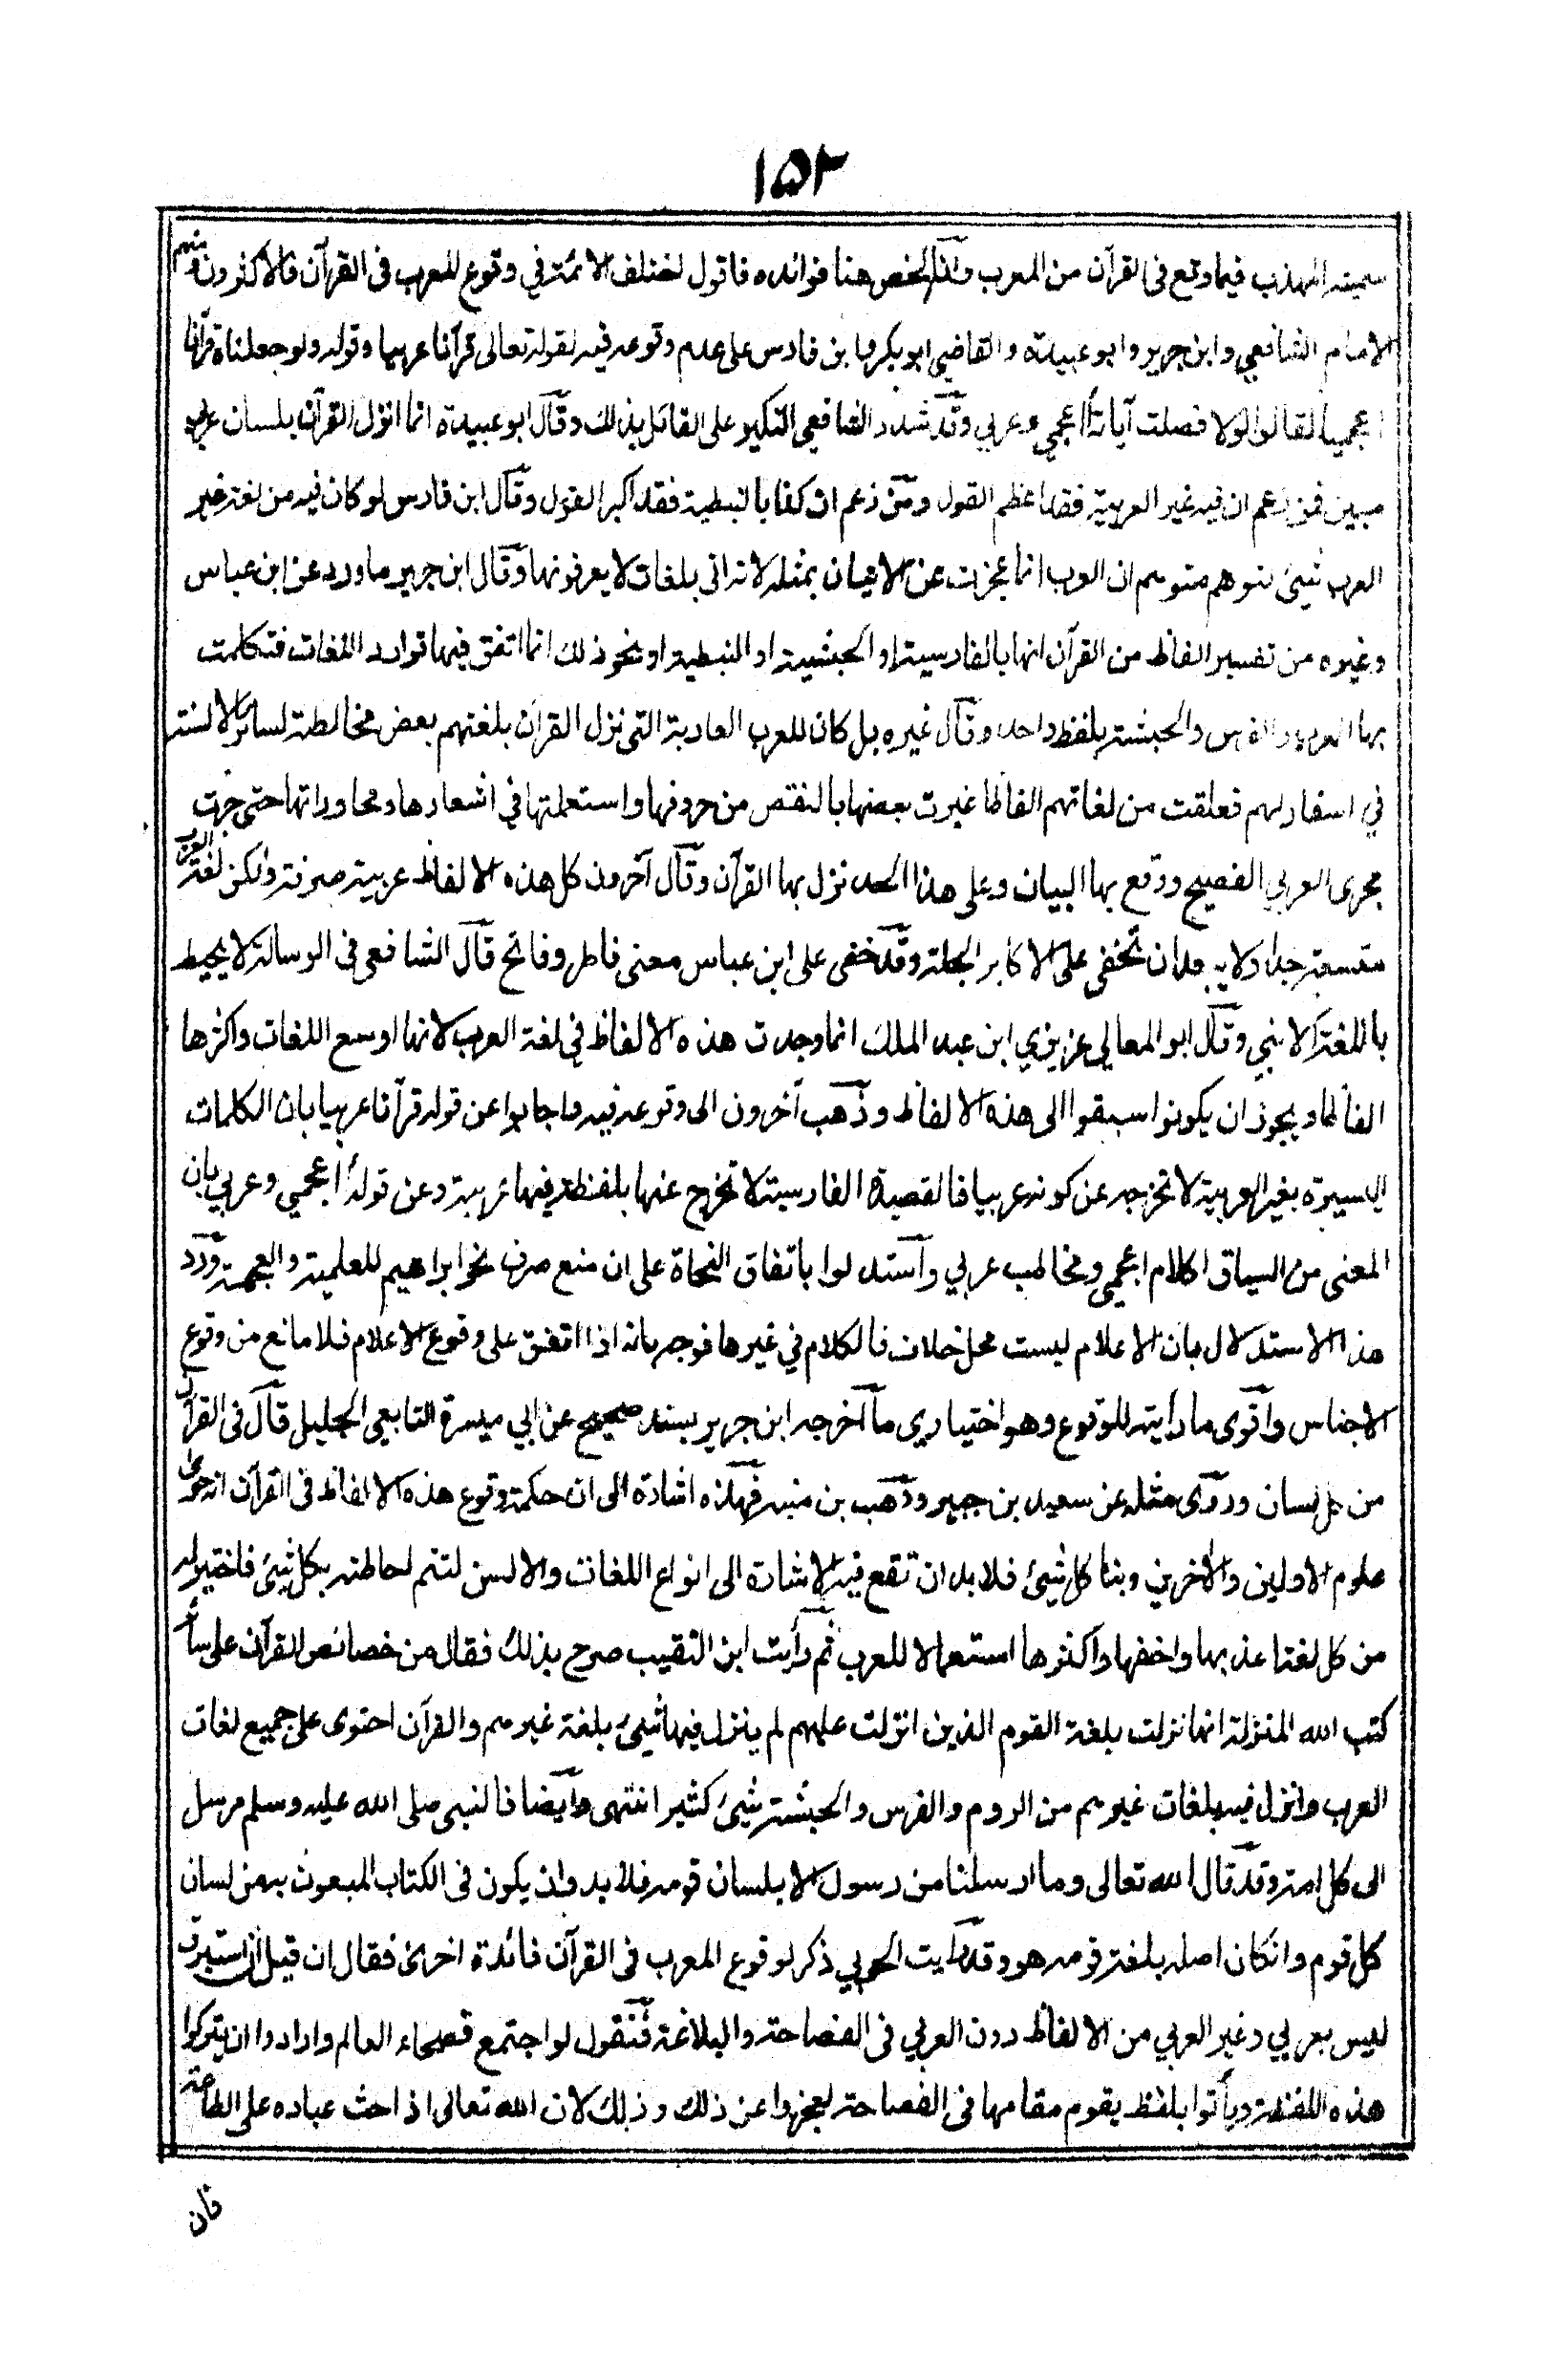 ١٥٢
سميته المهذب فيما وقع فى القرآن من المعرب وانا الخص هنا فوائده فاقول اختلف الائمة في وقوع المعرب فى القرآن فالاكثرون ومنهم
الامام الشافعي وابن جرير وابو عبيدة والقاضي ابو بكر وابن فارس على عدم وقوعه فيه لقوله تعالى قرآنا عربيا وقوله ولو جعلناه قرآنا
اعجميا لقالوا لولا فصلت آياته أاعجمي وعربي وقد شدد الشافعي النكير على القائل بذلك وقال ابو عبيدة انما انزل القرآن بلسان عربي
مبين فمن زعم ان فيه غير العربية فقد اعظم القول ومن زعم ان كذا بالنبطية فقد اكبر القول وقال ابن فارس لو كان فيه من لغة غير
العرب شيئ لتوهم متوهم ان العرب انما عجزت عن الاتيان بمثله لانه اتى بلغات لا يعرفونها وقال ابن جرير ما ورد عن ابن عباس
وغيره من تفسير الفاظ من القرآن انها بالفارسية او الحبشية او النبطية او نحو ذلك انما اتفق فيها توارد اللغات فتكلمت
بها العرب والفرس والحبشة بلفظ واحد وقال غيره بل كان للعرب العاربة التى نزل القرآن بلغتهم بعض مخالطة لسائر الالسنة
في اسفارهم فعلقت من لغاتهم الفاظا غيرت بعضها بالنقص من حروفها واستعملتها في اشعارها ومحاوراتها حتى جرت
مجرى العربي الفصيح ووقع بها البيان وعلى هذا الحد نزل بها القرآن وقال آخرون كل هذه الالفاظ عربية صرفة ولكن لغة العرب
متسعة جدا ولا يبعد ان تخفى على الاكابر الجلة وقد خفى على ابن عباس معنى فاطر وفاتح قال الشافعي فى الرسالة لا يحيط
باللغة الا نبي وقال ابو المعالي عزيزي ابن عبد الملك انما وجدت هذه الالفاظ في لغة العرب لانها اوسع اللغات واكثرها
الفاظا ويجوز ان يكونوا سبقوا الى هذه الالفاظ وذهب آخرون الى وقوعه فيه واجابوا عن قوله قرآنا عربيا بان الكلمات
اليسيرة بغير العربية لا تخرجه عن كونه عربيا فالقصيدة الفارسية لا تخرج عنها بلفظة فيها عربية وعن قوله أاعجمي وعربي بان
المعنى من السياق اكلام اعجمي ومخاطب عربي واستدلوا باتفاق النحاة على ان منع صرف نحو ابراهيم للعلمية والعجمة ورد
هذا الاستدلال بان الاعلام ليست محل خلاف فالكلام في غيرها فوجه بانه اذا اتفق على وقوع الاعلام فلا مانع من وقوع
الاجناس واقوى ما رأيته للوقوع وهو اختياري ما اخرجه ابن جرير بسند صحيح عن ابي ميسرة التابعي الجليل قال فى القرآن
من كل لسان وروى مثله عن سعيد بن جبير ووهب بن منبه فهذه اشارة الى ان حكمة وقوع هذه الالفاظ فى القرآن انه حوى
علوم الاولين والآخرين ونبأ كل شيئ فلا بد ان تقع فيه الاشارة الى انواع اللغات والالسن لتتم احاطته بكل شيئ فاختير له
من كل لغة اعذبها واخفها واكثرها استعمالا للعرب ثم رأيت ابن النقيب صرح بذلك فقال من خصائص القرآن على سائر
كتب الله المنزلة انها نزلت بلغة القوم الذين انزلت عليهم لم ينزل فيها شيئ بلغة غيرهم والقرآن احتوى على جميع لغات
العرب وانزل فيه بلغات غيرهم من الروم والفرس والحبشة شيئ كثير انتهى وايضا فالنبى صلى الله عليه وسلم مرسل
الى كل امة وقد قال الله تعالى وما ارسلنا من رسول الا بلسان قومه فلا بد وان يكون فى الكتاب المبعوث به من لسان
كل قوم وانكان اصله بلغة قومه هو وقد رأيت الخويي ذكر لوقوع المعرب فى القرآن فائدة اخرى فقال ان قيل ان استبرق
ليس بعربي وغير العربي من الالفاظ دون العربي فى الفصاحة والبلاغة فنقول لو اجتمع فصحاء العالم وارادوا ان يتركوا
هذه اللفظة ويأتوا بلفظ يقوم مقامها فى الفصاحة لعجزوا عن ذلك وذلك لان الله تعالى اذا حث عباده على الطاعة
فان